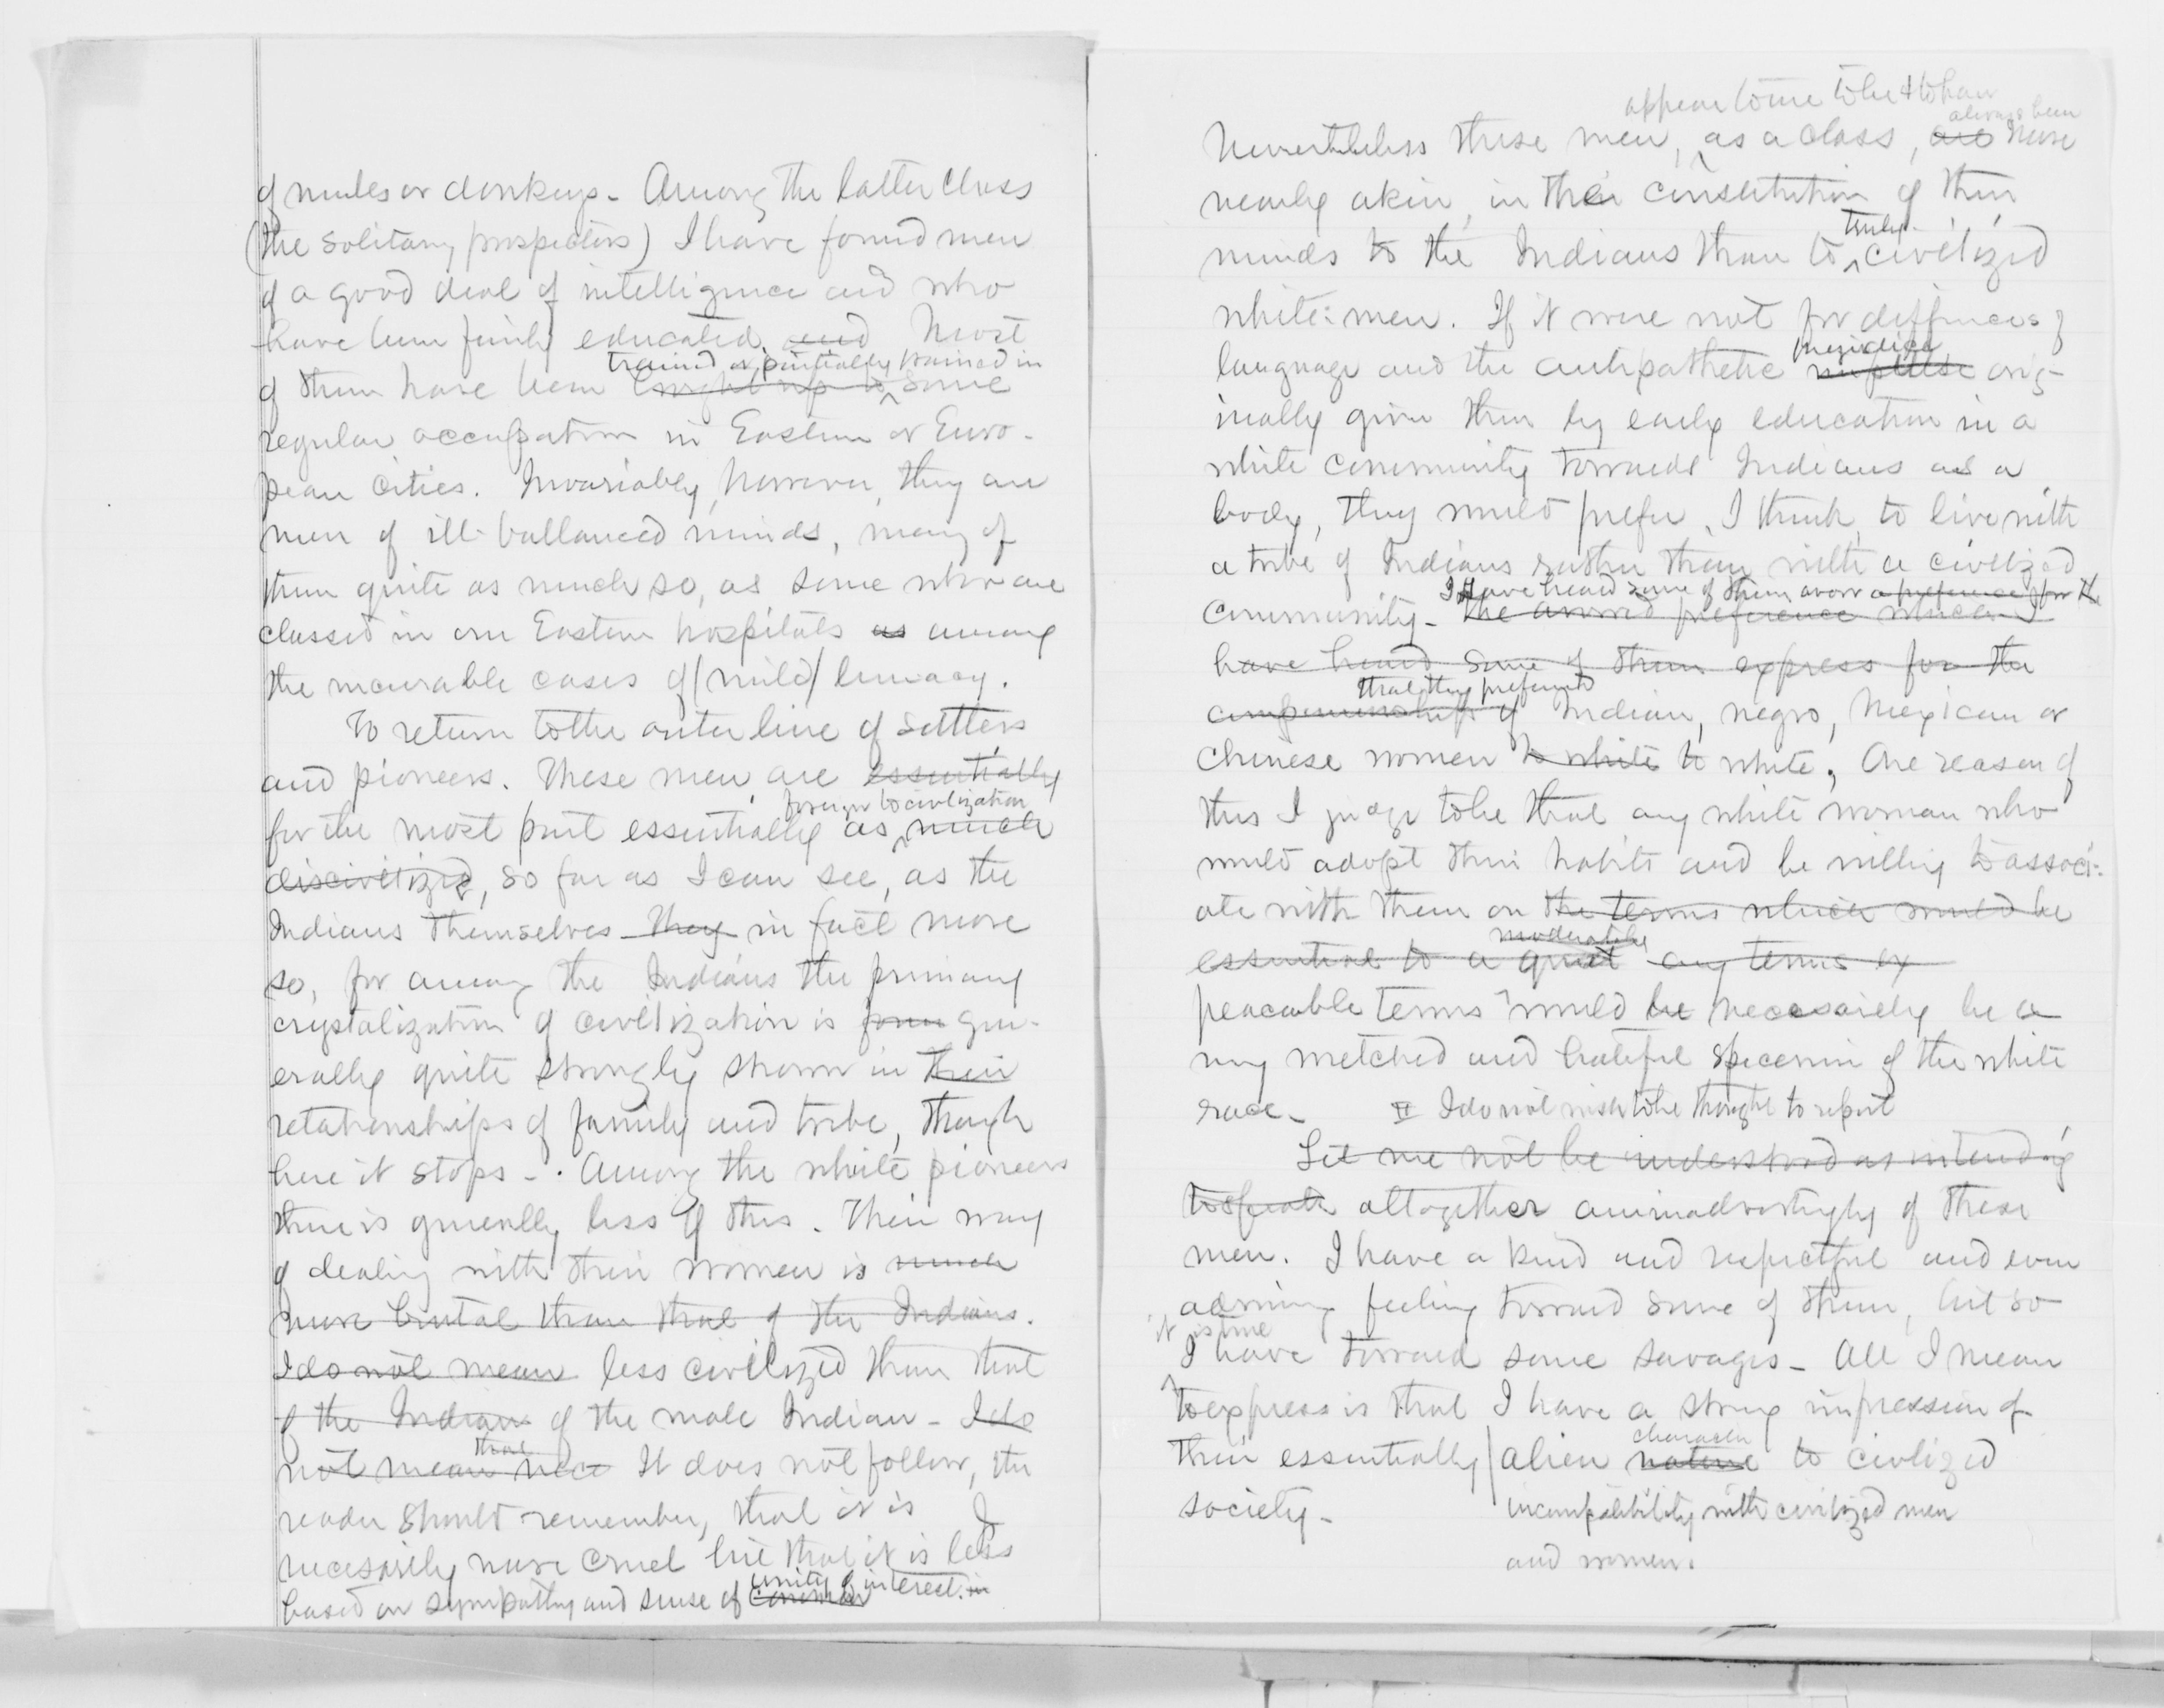 of mules or donkeys - Among the latter class
(the solitary prospectors) I have found men
of a good deal of intelligence and who
have been fairly educated. and Most
trained or partially trained in
of them have been brought up to some
regular occupation in Eastern or Euro-
pean cities. Invariably, however, they are
men of ill-ballanced minds, many of
them quite as much so, as some who are
classed in our Eastern hospitals as among
the incurable cases of (mild) lunacy.
To return to the outer line of settlers
and pioneers. These men, are essentially
foreign to civilization
for the most part essentially as much
discivilized, so far as I can see, as the
Indians themselves - they in fact more
so, for among the Indians the primary
crystalization of civilization is from gen-
erally quite strongly shown in their
relationships of family and tribe, though
here it stops - . Among the white pioneers
there is generally less of this. Their way
of dealing with their women is much
more brutal than that of the Indians.
I do not mean less civilized than that
of the Indian of the male Indian - I do
that
not mean It does not follow, the
reader should remember, that it is
necesarily more cruel but that it is less
unity of interest. in
based on sympathy and sense of common
appear to me to be & to have
always been
Nevertheless these men, as a class, are more
nearly akin, in their constitution of their
truly
minds to the Indians than to civilized
white men. If it were not for differences of
prejudice
language and the antipathetic impulse orig-
inally given them by early education in a
white community towards Indians as a
body, they would prefer, I think, to live with
a tribe of Indians rather than with a civilized
I have heard some of them avow a preference for the
community - the avowed preference which I
have heard some of them express for the
that they preferred
companionship of Indian, negro, Mexican or
Chinese women to white to white; One reason of
this I judge to be that any white woman who
would adopt their habits and be willing to associ-
ate with them on the terms which would be
moderately
essential to a quiet any terms of
peacable terms would be necessarily be a
very wretched and hateful specimin of the white
race - I do not wish to be thought to report
Let me not be understood as intending
to speak altogether animadvertingly of these
men. I have a kind and respectful and even
admiring feeling toward some of them, but so
it is true
I have toward some savages - All I mean
to express is that I have a strong impression of
character
their essentially | alien nature to civilized
society - incompatibility with civilized men
and women.